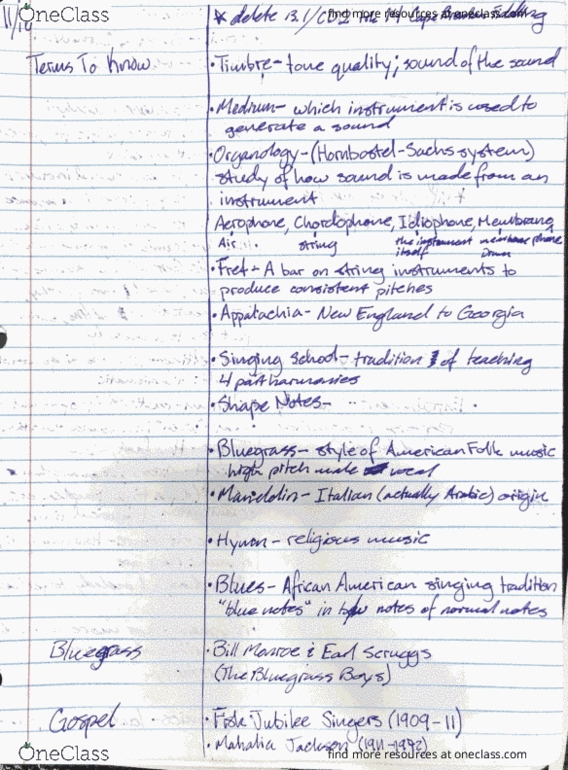 OneClass
find more resources at oneclass.com
11/10
* delete 13.1/CD2 Cape Breton Fiddling
Terms To Know
• Timbre - tone quality; sound of the sound
• Medium - which instrument is used to
generate a sound
• Organology - (Hornbostel-Sachs system)
study of how sound is made from an
instrument
Aerophone, Chordophone, Idiophone, Membrane
Air string the instrument membrane phone
itself Drum
• Fret - A bar on string instruments to
produce consistent pitches
• Appalachia - New England to Georgia
• Singing School - tradition of teaching
4 part harmonies
• Shape Notes -
• Bluegrass - style of American Folk music
high pitch male vocal
• Mandolin - Italian (actually Arabic) origin
• Hymn - religious music
• Blues - African American singing tradition
"blue notes" in notes of normal notes
Bluegrass
• Bill Monroe & Earl Scruggs
(The Bluegrass Boys)
Gospel
• Fisk Jubilee Singers (1909-11)
• Mahalia Jackson (1911-1972)
OneClass
find more resources at oneclass.com